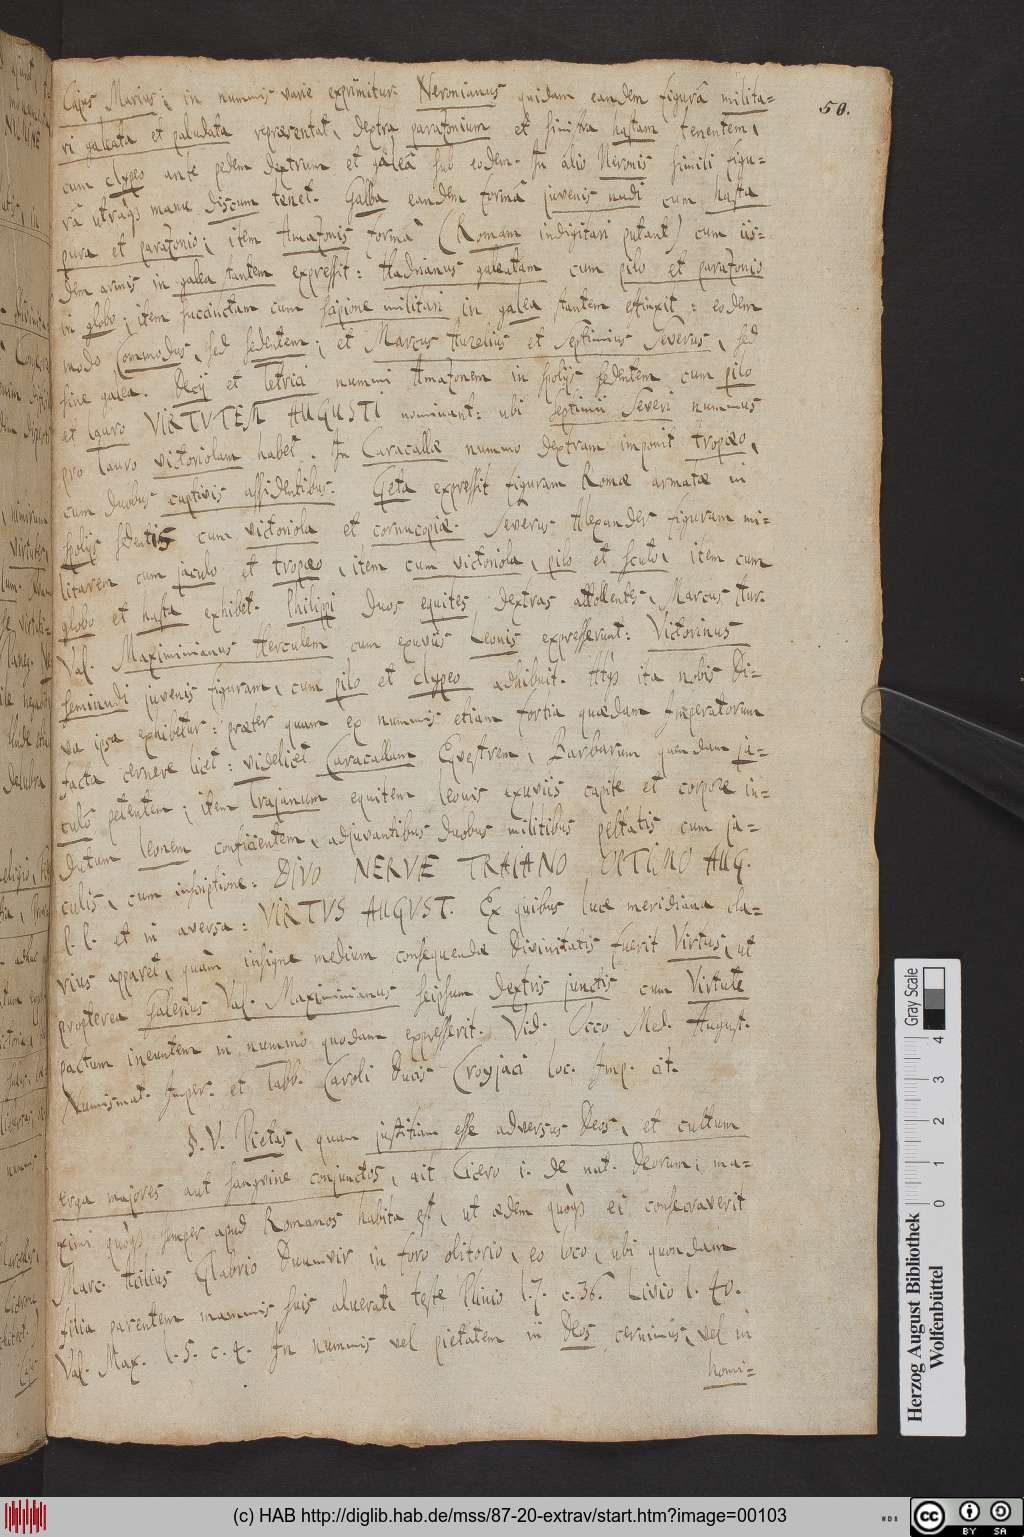 50.
Cajus Marius; in nummis varie exprimitur. Neronianus quidam eandem figurâ milita=
ri galeata et paludata repræsentat, dextra parazonium et sinistra hastam tenentem,
cum clypeo ante pedem dextrum et galeâ sub eodem. In alio Neronis simili figu=
râ utrâq; manu discum tenet. Galba eandem formâ juvenis nudi cum hasta
pura et parazonio; item Amazonis formâ (Romam indigitari putant) cum iis=
dem armis in galea stantem expressit: Hadrianus galeatam cum pilo et parazonio
in globo; item succinctam cum scipione militari in galea stantem effinxit: eodem
modo Commodus, sed sedentem; et Marcus Aurelius et Septimius Severus, sed
sine galea. Decij et Tetrici nummi Amazonem in spolijs sedentem cum pilo
et lauro VIRTVTEM AUGUSTI nominant: ubi Septimii Severi nummus
pro lauro victoriolam habet. In Caracallæ nummo dextram imponit tropæo,
cum duobus captivis assidentibus. Geta expressit figuram Romæ armatæ in
spolijs sedentis cum victoriola et cornucopiæ. Severus Alexander figuram mi=
litarem cum jaculo et tropæo, item cum victoriola, pilo et scuto, item cum
globo et hasta exhibet. Philippi duos equites dextras attollentes, Marcus Aur.
Val. Maximinianus Herculem cum exuviis Leonis expresserunt: Victorinus
seminudi juvenis figuram, cum pilo et clypeo adhibuit. Atq; ita nobis Di=
va ipsa exhibetur: præter quam ex nummis etiam fortia quædam Imperatorum
facta cernere licet: videlicet Caracallam Equestrem, Barbarum quendam ja=
culô petentem; item Trajanum equitem leonis exuviis capite et corpore in=
dutum leonem conficientem, adjuvantibus duobus militibus peltatis cum ja=
culis, cum inscriptione: DIVO NERVÆ TRAIANO OPTIMO AUG.
l. l. et in aversa: VIRTVS AUGVST. Ex quibus luce meridiana cla=
rius apparet, quàm insigne medium consequendæ Divinitatis fuerit Virtus, ut
propterea Galerius Val. Maximinianus seipsum dextris junctis cum Virtute
pactum ineuntem in nummo quodam expresserit. Vid. Occo Med. August.
Numismat. Imper. et Tabb. Caroli Ducis Croyjaci loc. Imp. cit.
§. V. Pietas, quam justitiam esse adversus Deos, et cultum
erga majores aut sangvine conjunctos, ait Cicero 1. de nat. Deorum, ma=
ximi quoq; semper apud Romanos habita est, ut ædem quoq; ei consecraverit
Marc. Acilius Glabrio Duumvir in foro olitorio, eo loco, ubi quondam
filia parentem mammis suis aluerat, teste Plinio l. 7. c. 36. Livio l. 40.
Val. Max. l. 5. c. 4. In nummis vel pietatem in Deos cernimus, vel in
homi=
Gray Scale
0 1 2 3 4
Herzog August Bibliothek
Wolfenbüttel
(c) HAB http://diglib.hab.de/mss/87-20-extrav/start.htm?image=00103
cc BY SA